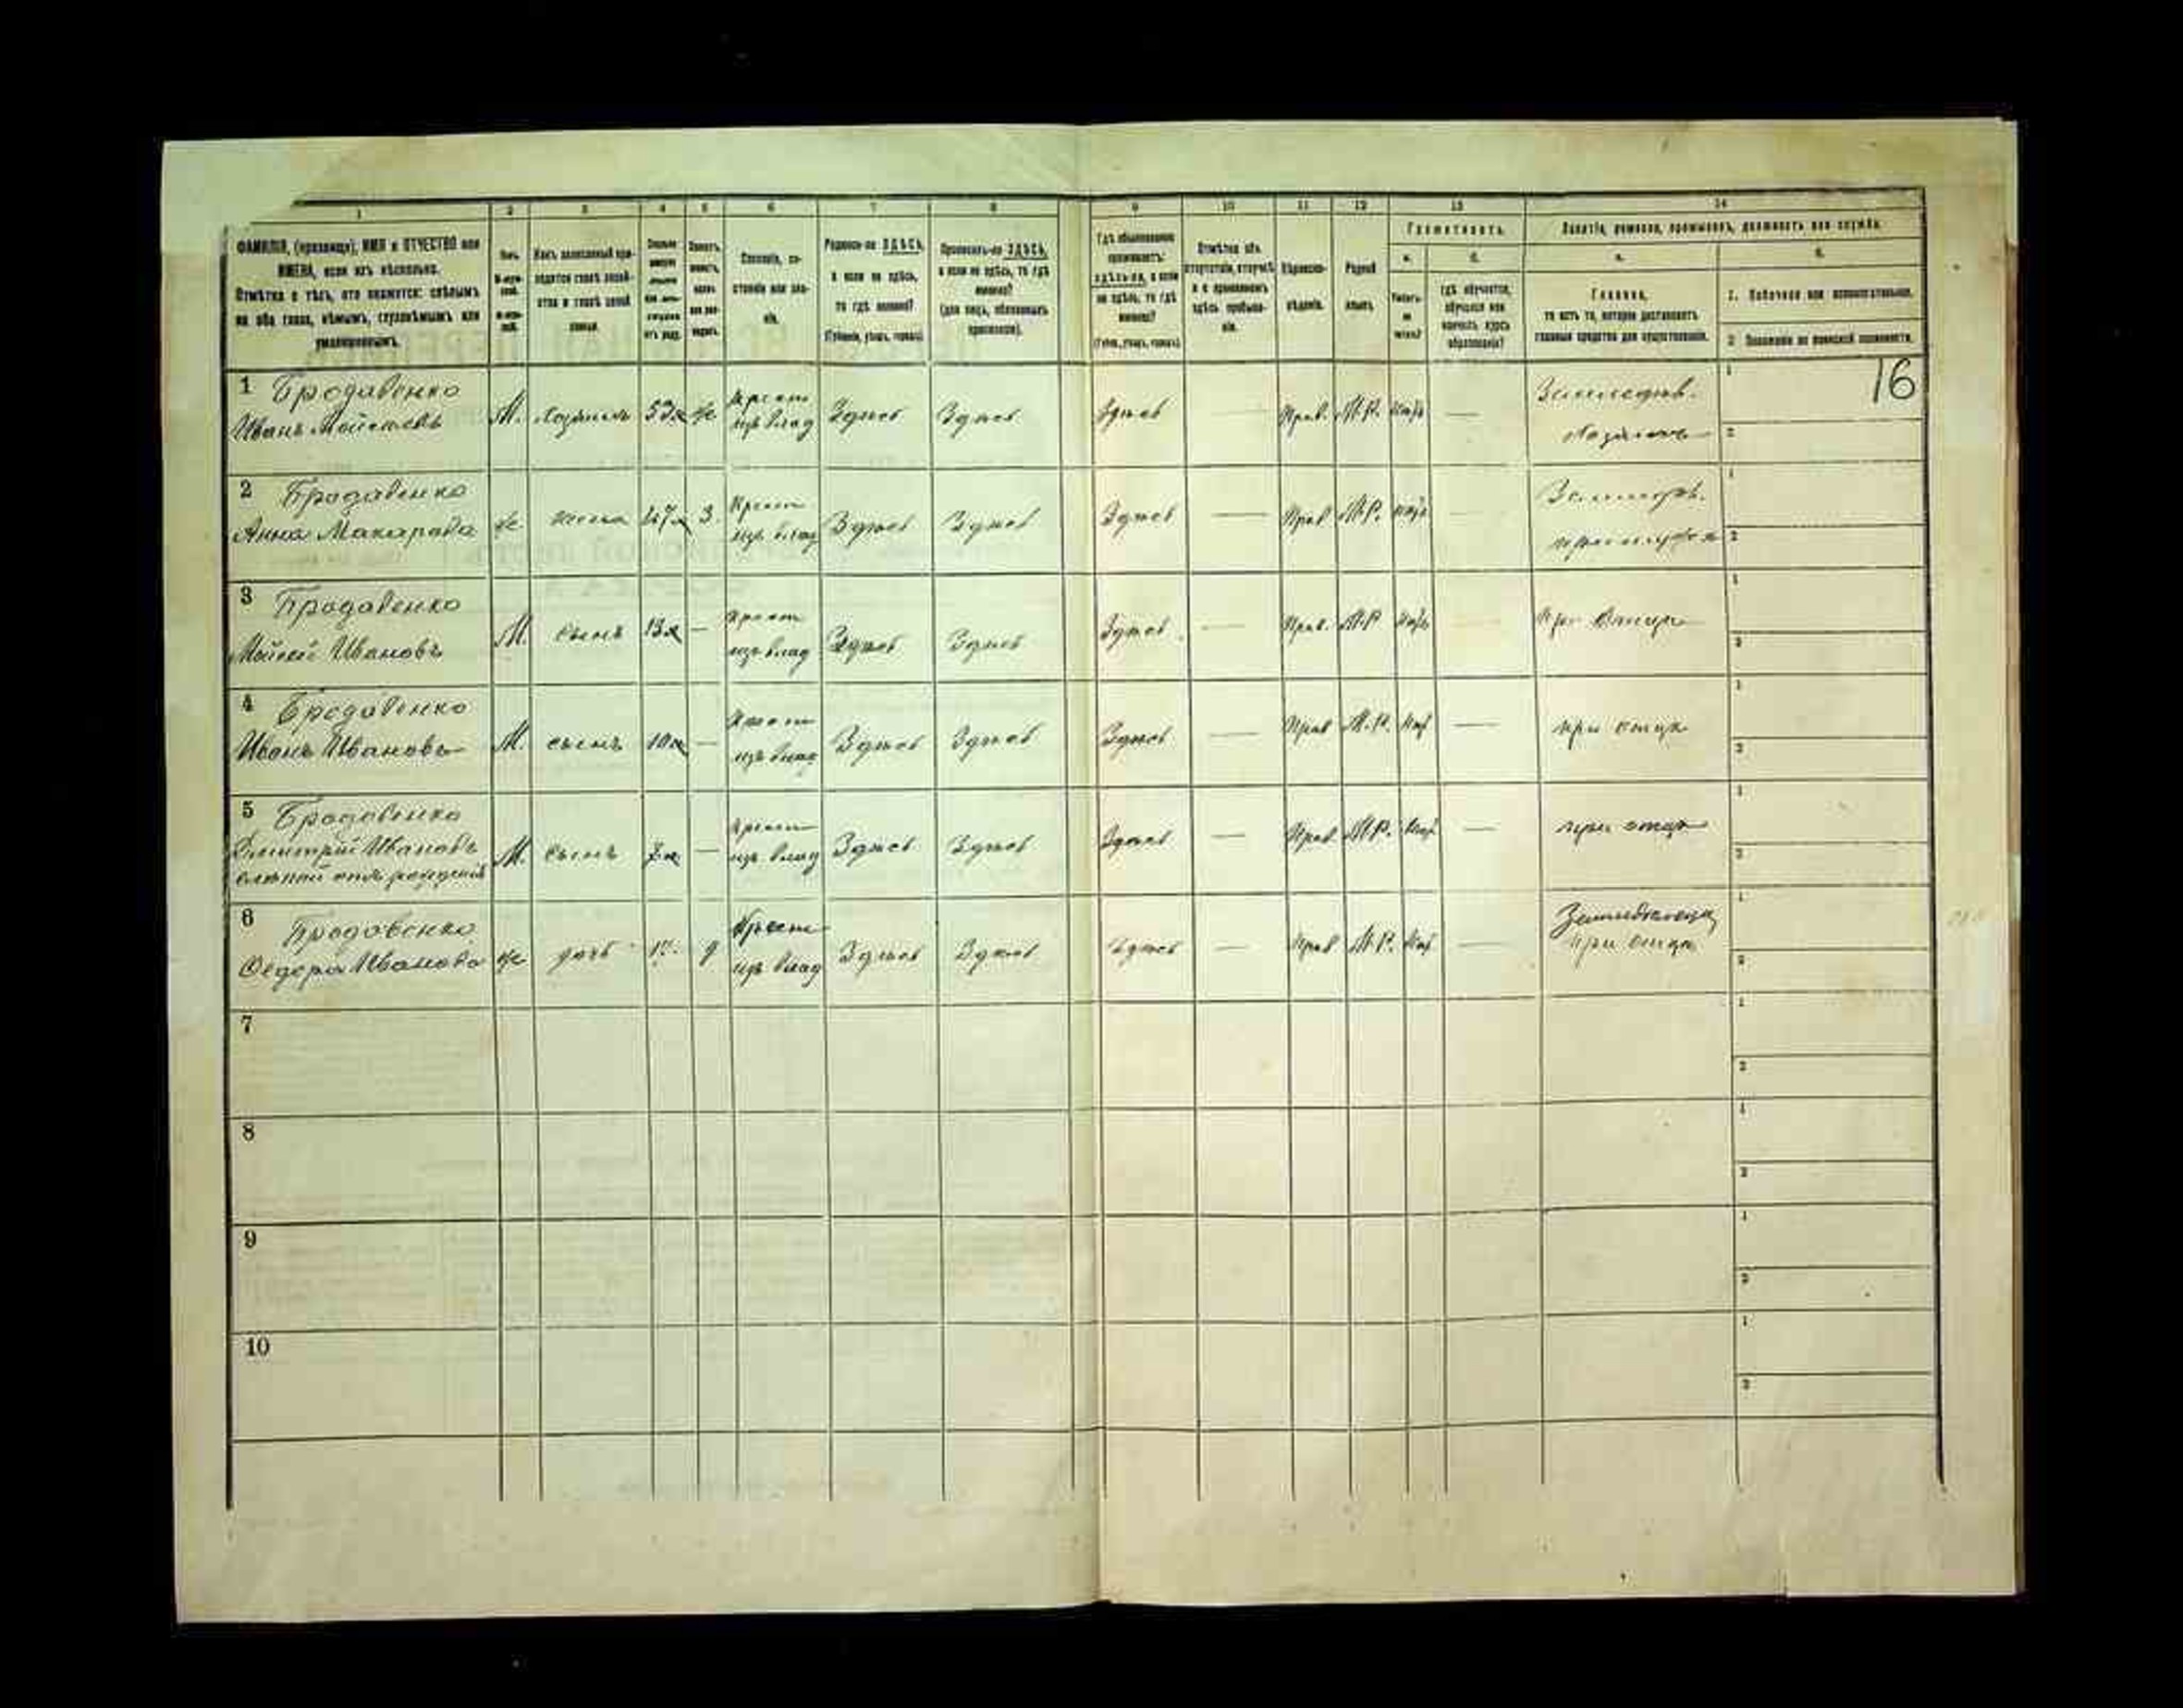 1 2 3 4 5 6 7 8 9 10 11 12 13 14
ФАМИЛІЯ, (прозвище), ИМЯ и ОТЧЕСТВО или
ИМЕНА, если ихъ нѣсколько.
Отмѣтка о тѣхъ, кто окажется: слѣпымъ
на оба глаза, нѣмымъ, глухонѣмымъ или
умалишеннымъ.
Полъ.
Какъ записанный при-
ходится главѣ хозяй-
ства и главѣ своей
семьи.
Сословіе, со-
стояніе или зва-
ніе.
Родился-ли ЗДѢСЬ,
а если не здѣсь,
то гдѣ именно?
(Губернія, уѣздъ, городъ)
Приписанъ-ли ЗДѢСЬ,
а если не здѣсь, то гдѣ
именно?
(для лицъ, обязанныхъ
припискою).
Гдѣ обыкновенно
проживаетъ:
здѣсь-ли, а если
не здѣсь, то гдѣ
именно?
(Губ., уѣздъ, городъ)
Отмѣтка объ
отсутствіи, отлучкѣ
и о временномъ
здѣсь пребыва-
ніи.
Вѣроиспо-
вѣданіе.
Родной
языкъ.
Грамотность.
а.
Умѣетъ-
ли
читать?
б.
гдѣ обучается,
обучался или
кончилъ курсъ
образованія?
Занятіе, ремесло, промыселъ, должность или служба.
а.
Главное,
то есть то, которое доставляетъ
главныя средства для существованія.
б.
1. Побочное или вспомогательное.
2 Положеніе по воинской повинности.
16
1 Бродавенко
Иванъ Мойсеевъ М. Хозяинъ 53 ж Крест изъ влад Здѣсь Здѣсь Здѣсь — Прав. М.Р. Нѣтъ —
Хозяинъ
2 Бродавенко
Анна Макарова ж жена 47 з Крест изъ влад Здѣсь Здѣсь Здѣсь — Прав М.Р. Нѣтъ
3 Бродавенко
Мойсей Ивановъ М. сынъ 13 — Крест изъ влад Здѣсь Здѣсь Здѣсь — Прав. М.Р Нѣтъ При Отцѣ
4 Бродавенко
Иванъ Ивановъ М. сынъ 10 — Крест изъ влад Здѣсь Здѣсь Здѣсь — Прав М.Р. Нѣт — при отцѣ
5 Бродавенко
Дмитрій Ивановъ
слѣпой отъ рожденія М. сынъ — Крест изъ влад Здѣсь Здѣсь Здѣсь — Прав М.Р. Нѣт — при отцѣ
6 Бродовенко
Ѳедора Иванова ж дочь д Крест изъ влад Здѣсь Здѣсь Здѣсь — Прав М.Р. Нѣт —
при отцѣ
7
8
9
10